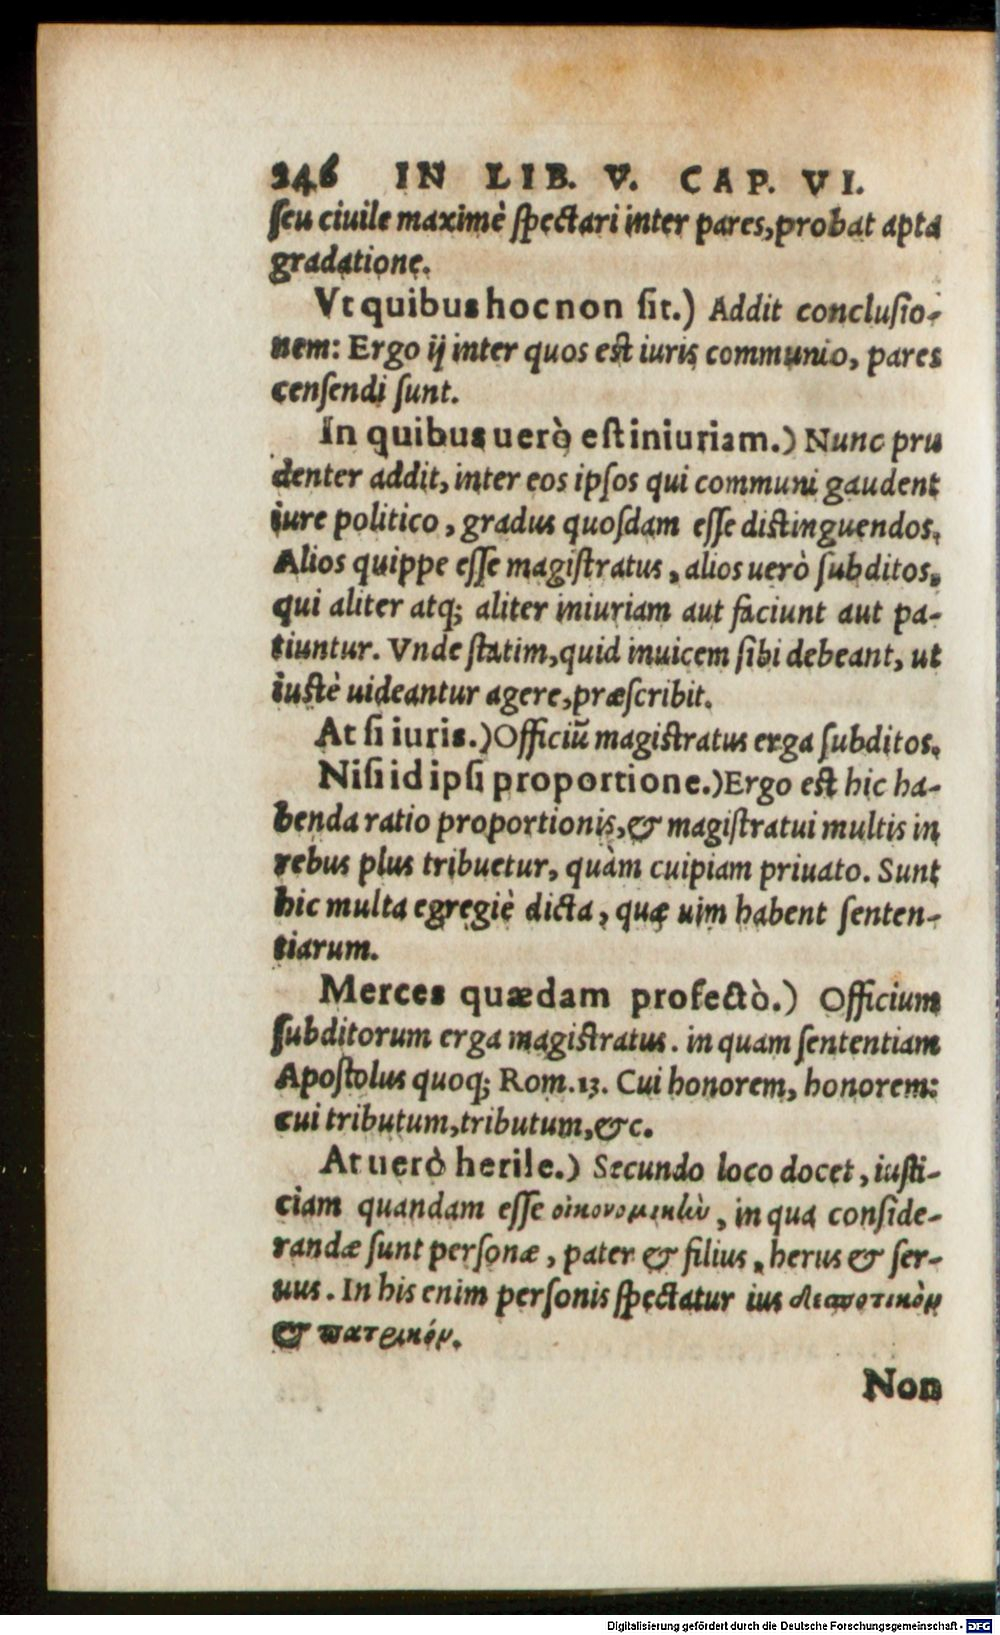 246 IN LIB. V. CAP. VI.
ſeu ciuile maximè ſpectari inter pares, probat apta
gradatione.
Vt quibus hoc non ſit.) Addit concluſio-
nem: Ergo ij inter quos est iuris communio, pares
cenſendi ſunt.
In quibus uerò eſt iniuriam.) Nunc pru
denter addit, inter eos ipſos qui communi gaudent
iure politico, gradus quoſdam eſſe distinguendos.
Alios quippe eſſe magiſtratus, alios uerò ſubditos,
qui aliter atq; aliter iniuriam aut faciunt aut pa-
tiuntur. Vnde ſtatim, quid inuicem ſibi debeant, ut
iustè uideantur agere, præſcribit.
At ſi iuris.) Officiũ magistratus erga ſubditos.
Niſi id ipſi proportione.) Ergo est hic ha-
benda ratio proportionis, & magiſtratui multis in
rebus plus tribuetur, quàm cuipiam priuato. Sunt
hic multa egregiè dicta, quæ uim habent ſenten-
tiarum.
Merces quædam profectò.) Officium
ſubditorum erga magistratus. in quam ſententiam
Apoſtolus quoq; Rom. 13. Cui honorem, honorem:
cui tributum, tributum, &c.
At uerò herile.) Secundo loco docet, iuſti-
ciam quandam eſſe οἰκονομικὴν, in qua conſide-
randæ ſunt perſonæ, pater & filius, herus & ſer-
uus. In his enim perſonis ſpectatur ius δεσποτικὸν
& πατρικόν.
Non
Digitalisierung gefördert durch die Deutsche Forschungsgemeinschaft - DFG